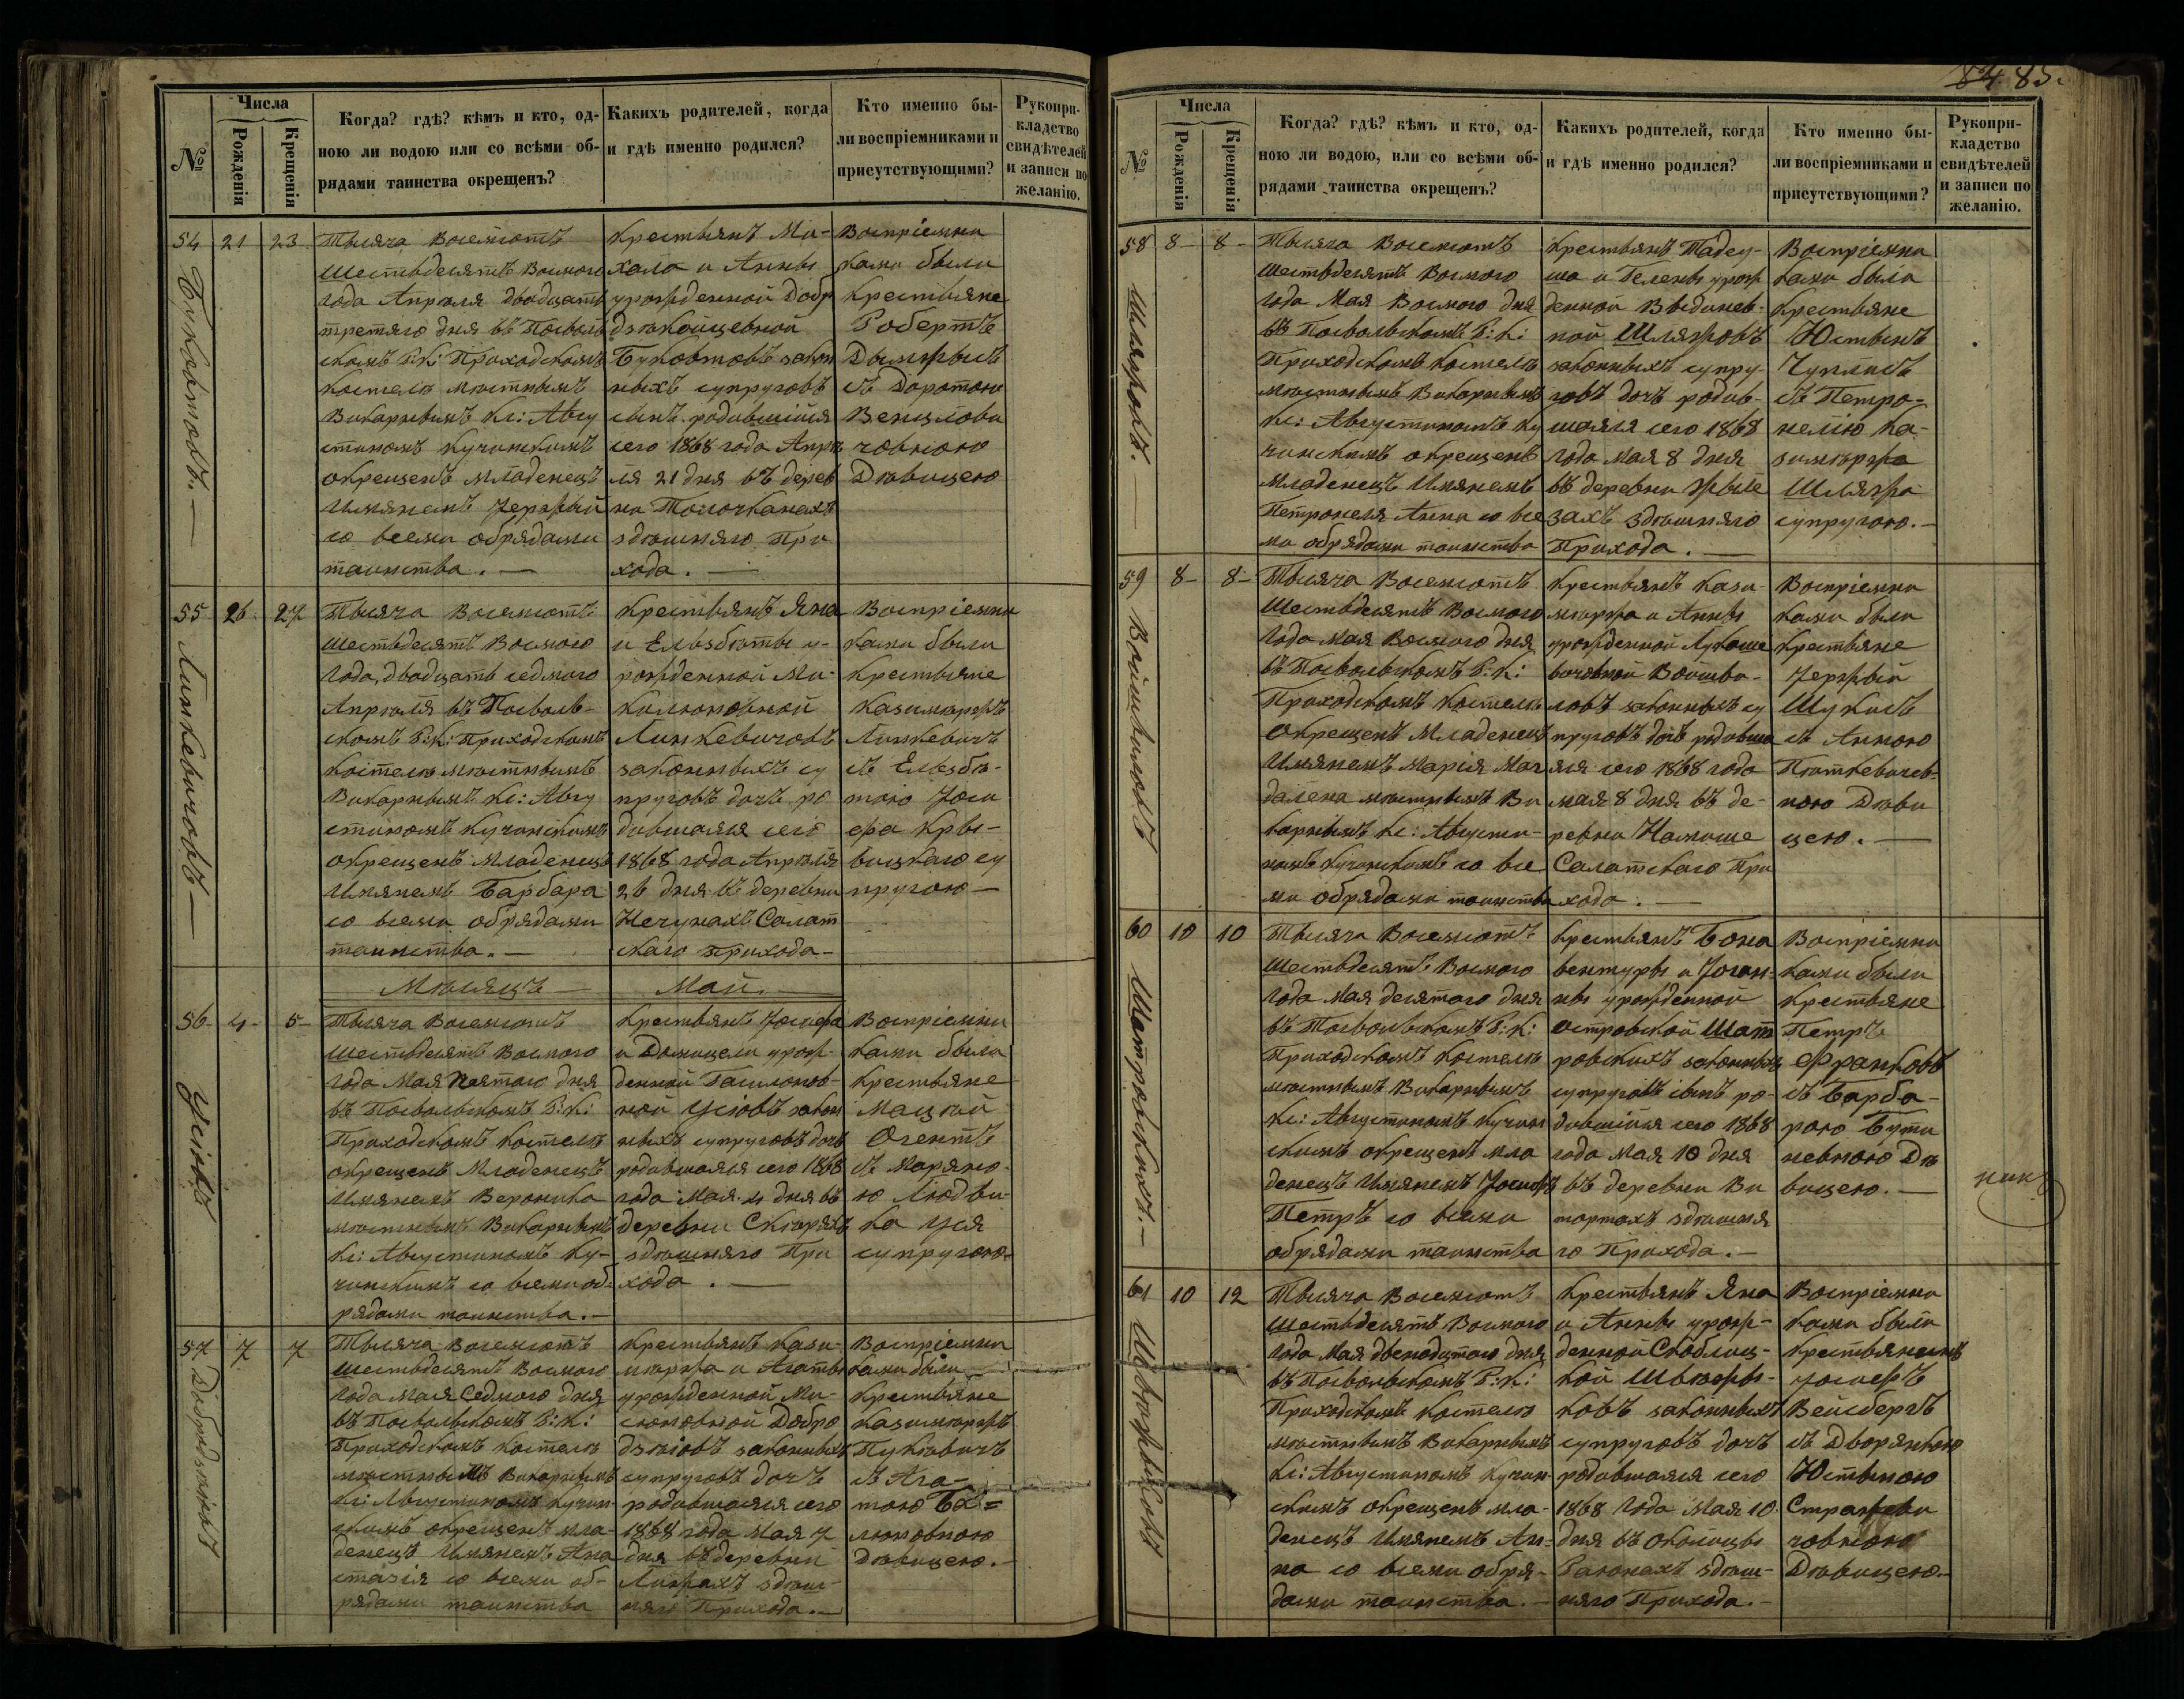 84. 85.
№
Числа
Рожденія
Крещенія
Когда? гдѣ? кѣмъ и кто, од-
ною ли водою или со всѣми об-
рядами таинства окрещенъ?
Какихъ родителей, когда
и гдѣ именно родился?
Кто именно бы-
ли воспріемниками и
присутствующими?
Рукопри-
кладство
свидѣтелей
и записи по
желанію.
54
21
23
Буковтовъ.
Тысяча восемсотъ
шестьдесятъ восмого
года Апрѣля двадцать
третяго дня въ Посволь
скомъ Р: К: Приходскомъ
костелѣ мѣстнымъ
Викарнымъ Кс: Авгу
стиномъ Кучинскимъ
окрещенъ младенецъ
имянемъ Іержій
со всеми обрядами
таинства. —
Крестьянъ Ми-
хала и Анны
урожденной Добр
дзѣйкойцевной
Буковтовъ закон
ныхъ супруговъ
сынъ родившійся
сего 1868 года Апрѣ
ля 21 дня въ дерев
ни Толочканахъ
здѣшняго При
хода. —
Воспріемни
ками были
Крестьяне
Робертъ
Дымжысъ
съ Доротою
Венцлови
човною
Дѣвицею
55
26
27
Линкевичовъ —
Тысяча восемсотъ
шестьдесятъ восмого
года, двадцать седмого
Апрѣля въ Посволь-
скомъ Р: К: Приходскомъ
костелѣ мѣстнымъ
Викарнымъ Кс: Авгу
стиномъ Кучинскимъ
окрещенъ младенецъ
имянемъ Барбара
со всеми обрядами
таинства. —
Крестьянъ Яна
и Ельзбѣты у-
рожденной Ми-
килюновной
Линкевичовъ
законныхъ су
пруговъ дочь ро
дившаяся сего
1868 года Апрѣля
26 дня въ деревни
Нечунахъ Салат
скаго прихода —
Воспріемни
ками были
Крестьяне
Казимѣржъ
Линкевичъ
съ Ельзбѣ-
тою Іоси
ефа Кры-
вицкаго су
пругою —
Мѣсяцъ — Май. —
56
4
5
Усіовъ
Тысяча восемсотъ
шестьдесятъ восмого
года Мая пятого дня
въ Посвольскомъ Р: К:
Приходскомъ костелѣ
окрещенъ младенецъ
имянемъ Вероника
мѣстнымъ Викарнымъ
Кс: Августиномъ Ку-
чинскимъ со всеми об-
рядами таинства. —
Крестьянъ Іосифа
и Доміцели урож-
денной Гасилюнов-
ной Усіовъ закон
ныхъ супруговъ дочь
родившаяся сего 1868
года Мая 4 дня въ
деревни Скіоряхъ
здѣшняго При
хода. —
Воспріемни
ками были
Крестьяне
Мацѣй
Огентъ
съ Маряно-
ю Людви-
ка Уся
супругою.
57
7
7
Добрдзѣіовъ
Тысяча восемсотъ
шестьдесятъ восмого
года Мая Седмого дня
въ Посвольскомъ Р: К:
Приходскомъ костелѣ
мѣстнымъ Викарнымъ
Кс: Августиномъ Кучин-
скимъ окрещенъ мла-
денецъ имянемъ Ана
стазія со всеми об-
рядами таинства
Крестьянъ Кази-
мѣржа и Агаты
урожденной Ми-
сюновной Добро
дзѣіовъ законныхъ
супруговъ дочь
родившаяся сего
1868 года Мая 7
дня въ деревни
Линжахъ здѣш-
няго Прихода. —
Воспріемни
ками были
Крестьяне
Казимѣржъ
Пукѣвичъ
съ Ага-
тою Ба=
люновною
Дѣвицею. —
№
Числа
Рожденія
Крещенія
Когда? гдѣ? кѣмъ и кто, од-
ною ли водою, или со всѣми об-
рядами таинства окрещенъ?
Какихъ родителей, когда
и гдѣ именно родился?
Кто именно бы-
ли воспріемниками и
присутствующими?
Рукопри-
кладство
свидѣтелей
и записи по
желанію.
58
8
8
Шляжовъ. —
Тысяча восемсотъ
шестьдесятъ восмого
года Мая восмого дня
въ Посвольскомъ Р: К:
Приходскомъ костелѣ
мѣстнымъ Викарнымъ
Кс: Августиномъ Ку
чинскимъ окрещенъ
младенецъ имянемъ
Петронеля Анна со все
ми обрядами таинства
Крестьянъ Тадеу-
ша и Гелены урож
денной Выдинев-
ной Шляжовъ
законныхъ супру-
говъ дочь родив-
шаяся сего 1868
года Мая 8 дня
въ деревни Жвые
захъ здѣшняго
Прихода. —
Воспріемни
ками были
Крестьяне
Юстынъ
Чуплисъ
съ Петро-
нелію Ка-
зимѣржа
Шляжа
супругою. —
59
8
8
Войшвиловъ
Тысяча восемсотъ
шестьдесятъ восмого
года Мая восмого дня
въ Посвольскомъ Р: К:
Приходскомъ костелѣ
окрещенъ младенецъ
имянемъ Марія Маг
далена мѣстнымъ Ви
карнымъ Кс: Августи-
номъ Кучинскимъ со все
ми обрядами таинства
Крестьянъ Кази-
мѣржа и Анны
урожденной Лукоше
вичовной Войшви-
ловъ законныхъ су
пруговъ дочь родивша
яся сего 1868 года
мая 8 дня въ де-
ревни Намише
Салатскаго При
хода. —
Воспріемни
ками были
Крестьяне
Іержый
Шукисъ
съ Анною
Пѣткевичев-
ною Дѣви
цею. —
60
10
10
Шатровскихъ. —
Тысяча восемсотъ
шестьдесятъ восмого
года Мая десятого дня
въ Посвольскомъ Р: К:
Приходскомъ костелѣ
мѣстнымъ Викарнымъ
Кс: Августиномъ Кучин
скимъ окрещенъ мла
денецъ имянемъ Іосифъ
Петръ со всеми
обрядами таинства
Крестьянъ Бона
вентуры и Іоган-
ны урожденной
Островской Шат
ровскихъ законныхъ
супруговъ сынъ ро-
дившійся сего 1868
года Мая 10 дня
въ деревни Ви
тортахъ здѣшня
го Прихода. —
Воспріемни
ками были
Крестьяне
Петръ
Франковъ
съ Барба-
рою Бути
невною Дѣ
вицею. —
61
10
12
Швѣжыковъ
Тысяча восемсотъ
шестьдесятъ восмого
года Мая двенадцтого дня
въ Посвольскомъ Р: К:
Приходскомъ костелѣ
мѣстнымъ Викарнымъ
Кс: Августиномъ Кучин-
скимъ окрещенъ мла-
денецъ имянемъ Ан-
на со всеми обря-
дами таинства. —
Крестьянъ Яна
и Анны урож-
денной Скоблиц-
кой Швѣжы-
ковъ законныхъ
супруговъ дочь
родившаяся сего
1868 года Мая 10
дня въ околицы
Раюнахъ здѣш-
няго Прихода. —
Воспріемни
ками были
Крестьянинъ
Іосифъ
Вейсбергъ
съ Дворянкою
Юстыною
Стражеви
човною
Дѣвицею. —